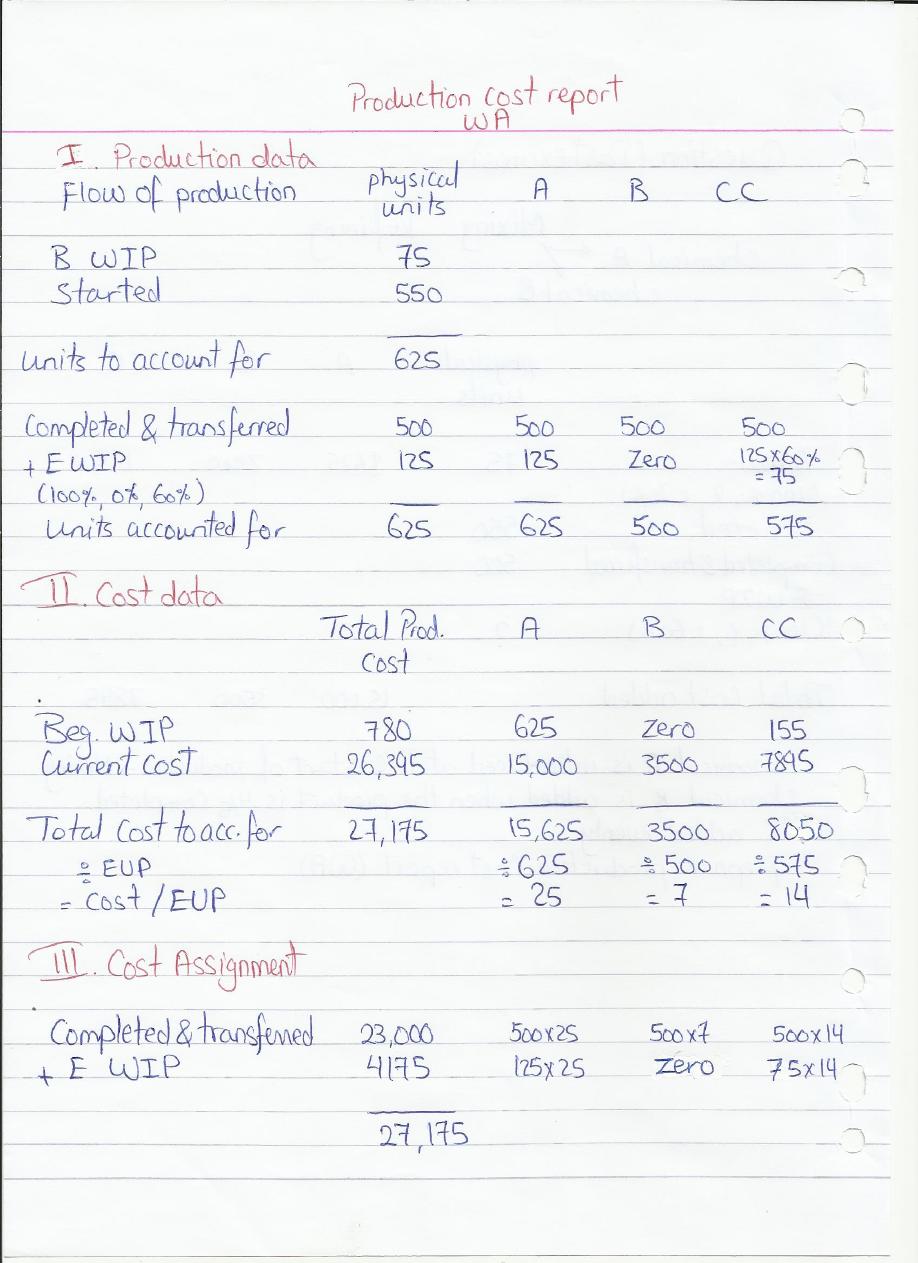 Production cost report
WA
I. Production data
Flow of production physical units A B CC
B WIP 75
Started 550
units to account for 625
Completed & transferred 500 500 500 500
+ E WIP 125 125 Zero 125x60% = 75
(100%, 0%, 60%)
Units accounted for 625 625 500 575
II. Cost data
Total Prod. Cost A B CC
Beg. WIP 780 625 Zero 155
Current cost 26,395 15,000 3500 7895
Total Cost to acc. for 27,175 15,625 3500 8050
÷ EUP ÷625 ÷500 ÷575
= Cost / EUP = 25 = 7 = 14
III. Cost Assignment
Completed & transferred 23,000 500x25 500x7 500x14
+ E WIP 4175 125x25 Zero 75x14
27,175